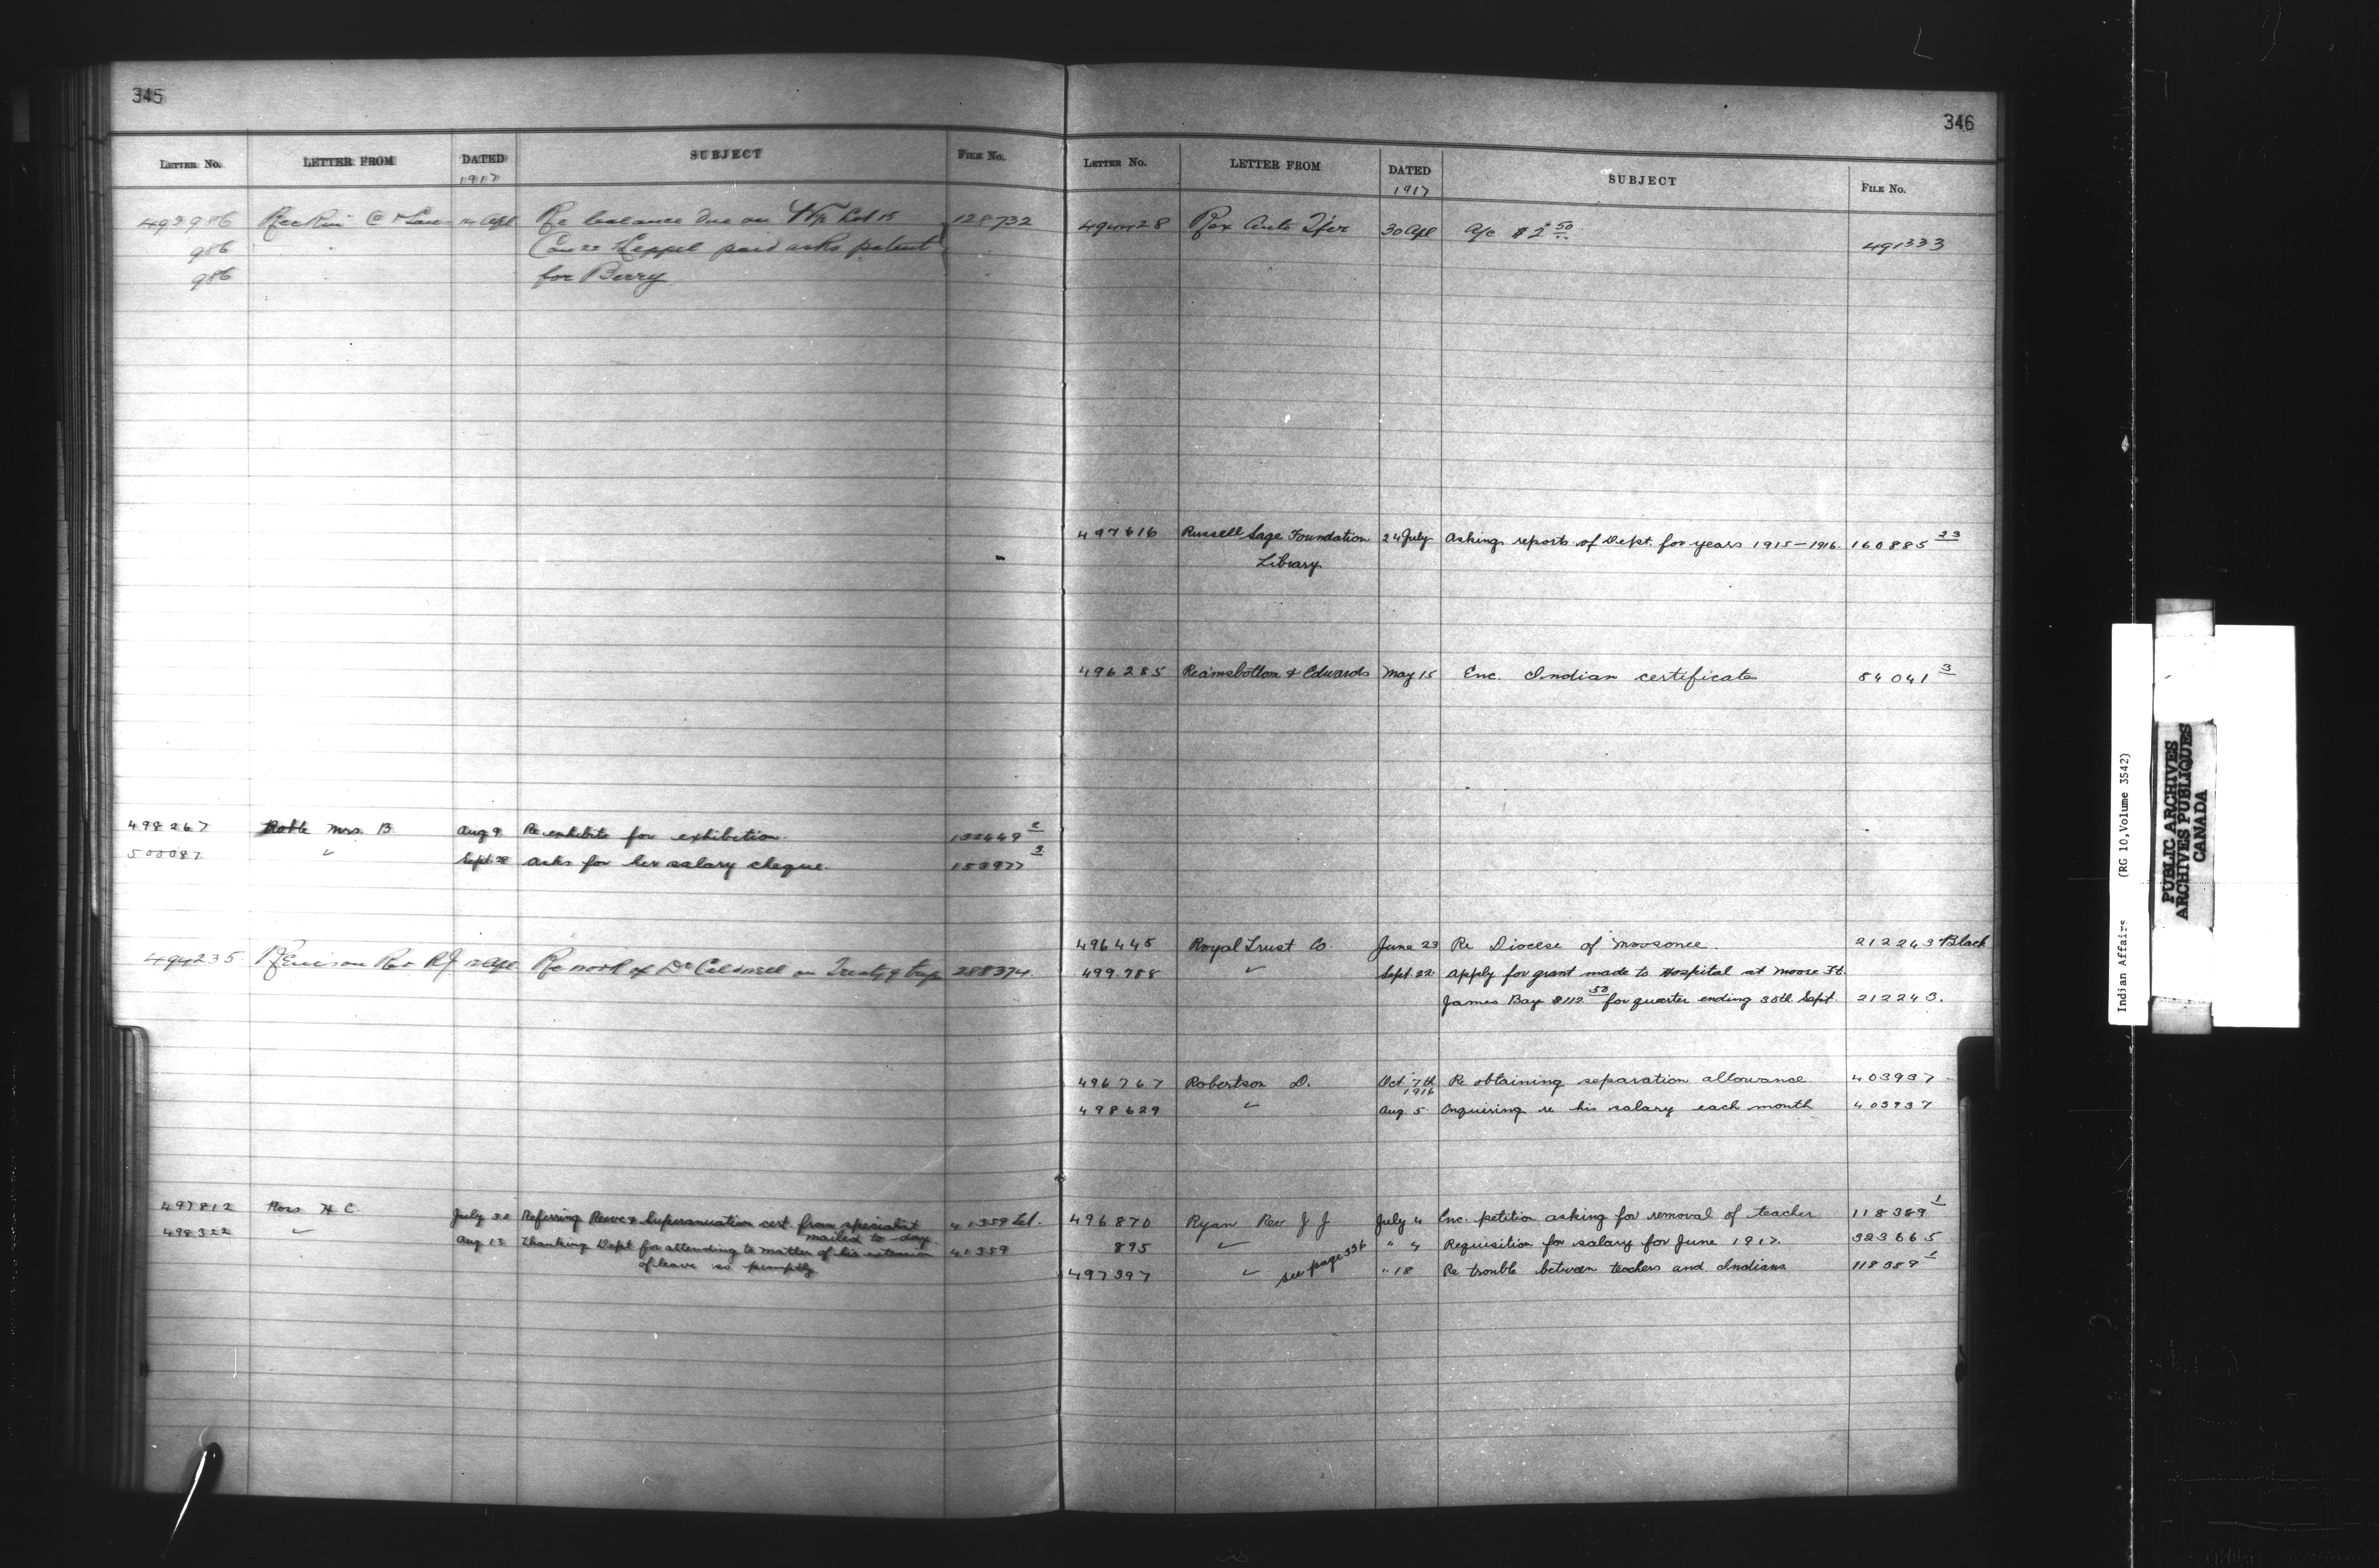 345
LETTER No. LETTER FROM DATED SUBJECT FILE No.
1917
493986 & 14 Apl Re balance due on 128732
986 " Keppel paid asks patent "
986 " for Berry "
498267 Roble Mrs. B. Aug 9 Re exhibits for exhibition. 132449 2
500087 " Sept 28 Asks for her salary cheque. 153977 3
494235 Renison Rev RJ 12 Apl Re work of Dr on Treaty 9 trip 288374
497812 Ross H C. July 30 Referring Reeve's Superannuation cert. from specialist 41359
mailed to-day.
498322 " Aug 13 Thanking Dept for attending to matter of his extension 41359
of leave so promptly
346
LETTER No. LETTER FROM DATED SUBJECT FILE No.
1917
494428 Rex Auto 30 Apl A/c $2 50 491333
497616 Russell Sage Foundation 24 July Asking reports of Dept. for years 1915-1916. 160885 23
Library
496285 Reamsbottom & Edwards May 15 Enc. Indian certificate 84041 3
496445 Royal Trust Co. June 23 Re Diocese of Moosonee. 212243 Black
499.788 " Sept. 22 Apply for grant made to Hospital at Moose Ft.
James Bay $112 50 for quarter ending 30th Sept. 212243.
496767 Robertson D. Oct 7th Re obtaining separation allowance 403937
1916
498629 " Aug 5 Enquiring re his salary each month 403937
496870 Ryan Rev J J July 4 Enc. petition asking for removal of teacher 118389 1
895 " " 4 Requisition for salary for June 1917. 323665
497397 " see page 336 " 18 Re trouble between teachers and Indians 118389 1
Indian Affairs (RG 10, Volume 3542)
PUBLIC ARCHIVES
ARCHIVES PUBLIQUES
CANADA